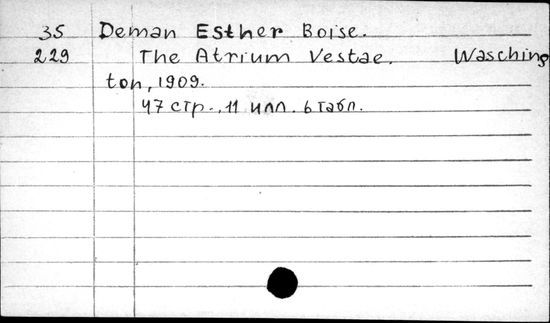 35 Deman Esther Boise.
229 The Atrium Vestae. Wasching
ton, 1909.
47 стр., 11 илл. 6 табл.